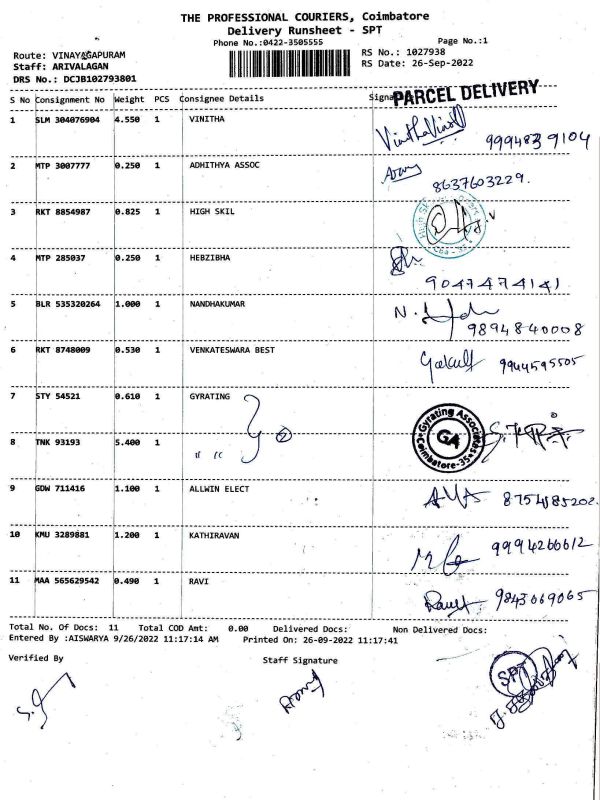 THE PROFESSIONAL COURIERS, Coimbatore
Delivery Runsheet - SPT
Phone No.:0422-3505555 Page No.:1
Route: VINAYAGAPURAM RS No.: 1027938
Staff: ARIVALAGAN RS Date: 26-Sep-2022
DRS No.: DCJB102793801
PARCEL DELIVERY
S No Consignment No Weight PCS Consignee Details
1 SLM 304076904 4.550 1 VINITHA
9994839104
2 MTP 3007777 0.250 1 ADHITHYA ASSOC
8637603229.
3 RKT 8854987 0.825 1 HIGH SKIL
4 MTP 285037 0.250 1 HEBZIBHA
9047474141
5 BLR 535320264 1.000 1 NANDHAKUMAR
9894840008
6 RKT 8748009 0.530 1 VENKATESWARA BEST
9944595505
7 STY 54521 0.610 1 GYRATING
Gyrating Associates
GA
Coimbatore-35
8 TNK 93193 5.400 1 " "
9 GDW 711416 1.100 1 ALLWIN ELECT
8754085202.
10 KMU 3289881 1.200 1 KATHIRAVAN
9994266612
11 MAA 565629542 0.490 1 RAVI
9843069065
Total No. Of Docs: 11 Total COD Amt: 0.00 Delivered Docs: Non Delivered Docs:
Entered By :AISWARYA 9/26/2022 11:17:14 AM Printed On: 26-09-2022 11:17:41
Verified By Staff Signature
SPT